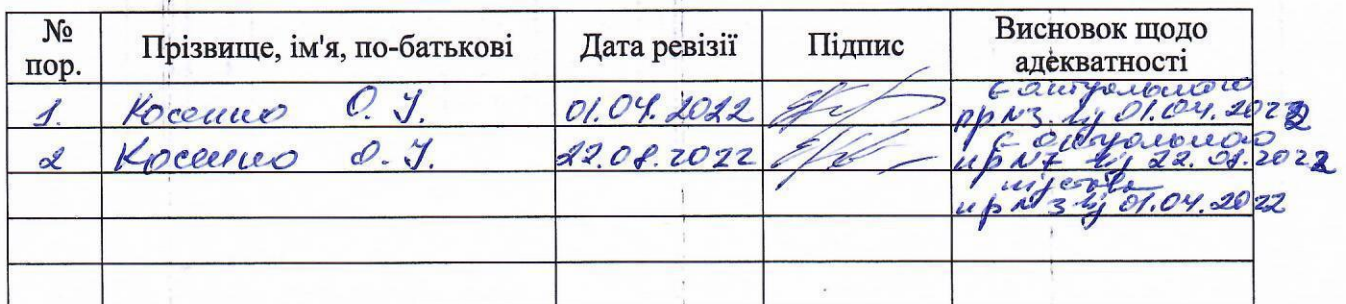 № пор. Прізвище, ім'я, по-батькові Дата ревізії Підпис Висновок щодо адекватності
1. Косенко О. І. 01.04.2022 є актуальною
пр №3. від 01.04.2022
2 Косенко О. І. 22.08.2022 є актуальною
пр №7 від 22.08.2022
підстава
пр №3 від 01.04.2022